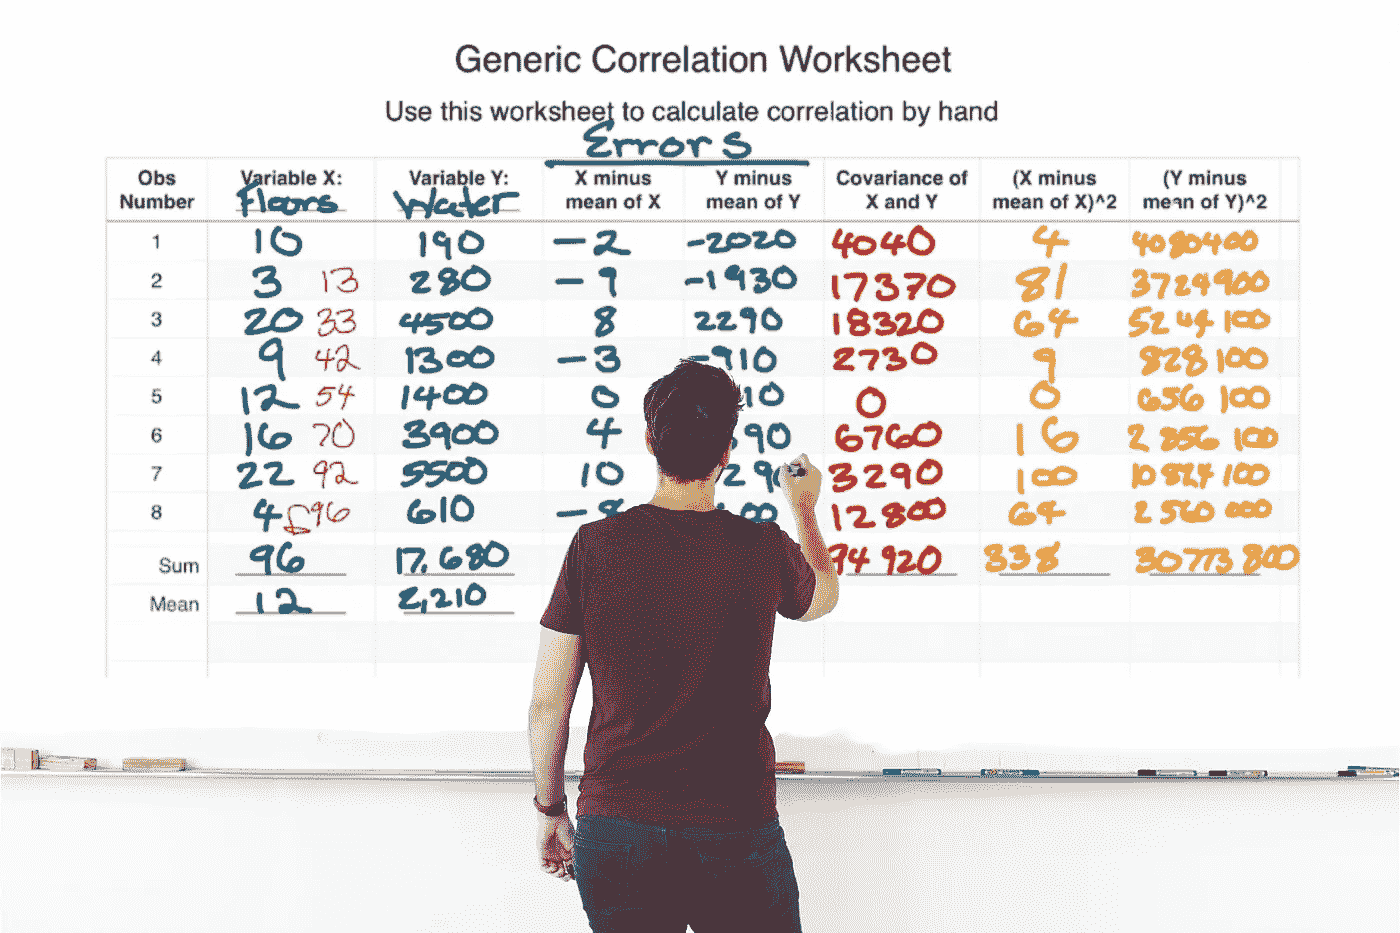 Generic Correlation Worksheet
Use this worksheet to calculate correlation by hand
Errors
Obs Number Variable X: Floors Variable Y: Water X minus mean of X Y minus mean of Y Covariance of X and Y (X minus mean of X)^2 (Y minus mean of Y)^2
1 10 190 -2 -2020 4040 4 4080400
2 3 13 280 -9 -1930 17370 81 3724900
3 20 33 4500 8 2290 18320 64 5244100
4 9 42 1300 -3 -910 2730 9 828100
5 12 54 1400 0 10 0 0 656100
6 16 70 3900 4 90 6760 16 2856100
7 22 92 5500 10 290 3290 100 10824100
8 4 £96 610 -8 00 12800 64 2560000
Sum 96 17,680 94920 338 30773800
Mean 12 2,210